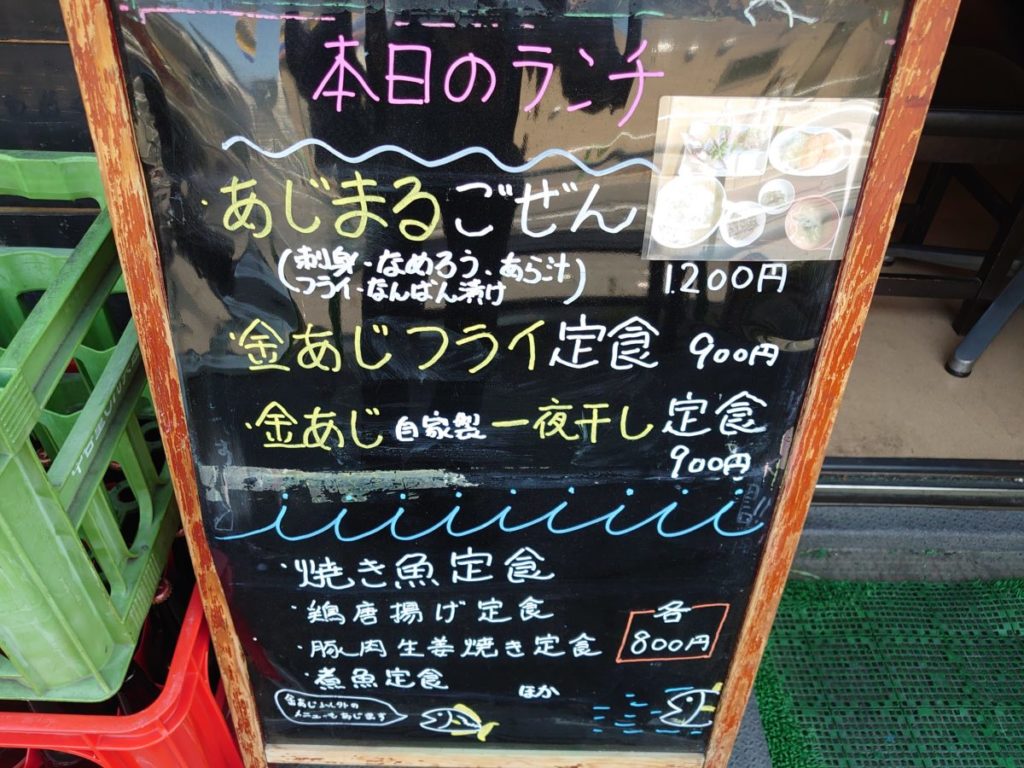 本日のランチ
・あじまるごぜん
(刺身・なめろう・あら汁
フライ・なんばん漬け)
1.200円
・金あじフライ定食 900円
・金あじ自家製一夜干し定食
900円
・焼き魚定食
・鶏唐揚げ定食
・豚肉生姜焼き定食
・煮魚定食 ほか
各
800円
金あじ以外の
メニューもあじます